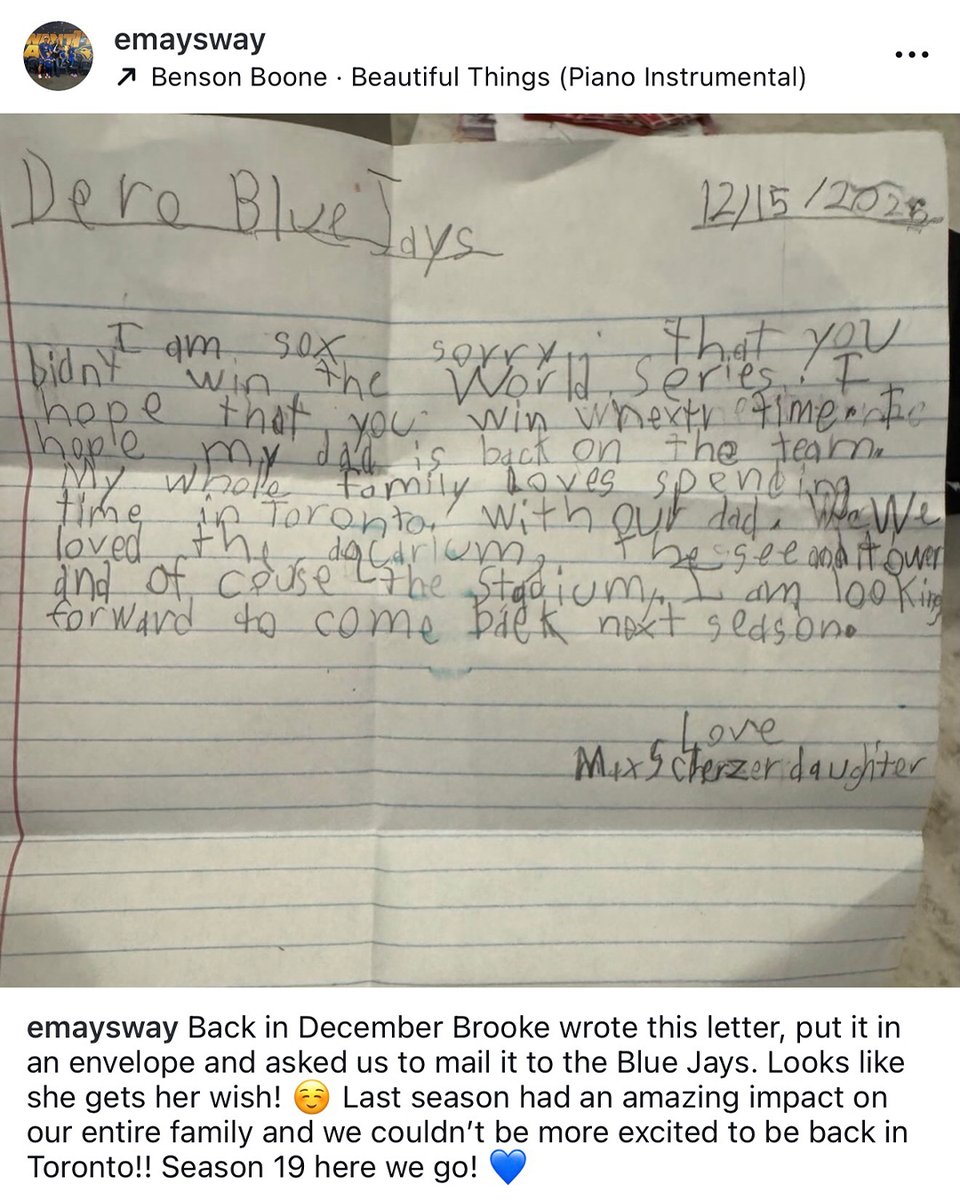 emaysway
Benson Boone · Beautiful Things (Piano Instrumental)
Dero Blue Jays
12/15/2026
I am sox sorry that you
bidnt win the World series. I
hope that you win next time
hople my dad is back on the team.
My whole family loves spending
time in Toronto. with our dad. We
loved the aqcarium, the see and tower
and of couse the stadium, I am looking
forward to come back next season.
Love
Max Scherzer daughter
emaysway Back in December Brooke wrote this letter, put it in
an envelope and asked us to mail it to the Blue Jays. Looks like
she gets her wish! ☺️ Last season had an amazing impact on
our entire family and we couldn't be more excited to be back in
Toronto!! Season 19 here we go! 💙